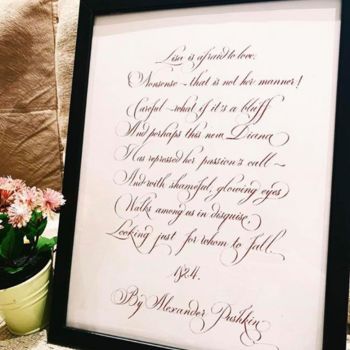 Lisa is afraid to love.
Nonsense - that is not her manner!
Careful - what if it's a bluff
And perhaps this new Diana
Has repressed her passion's call -
And with shameful, glowing eyes
Walks among us in disguise,
Looking just for whom to fall
1824.
By Alexander Pushkin